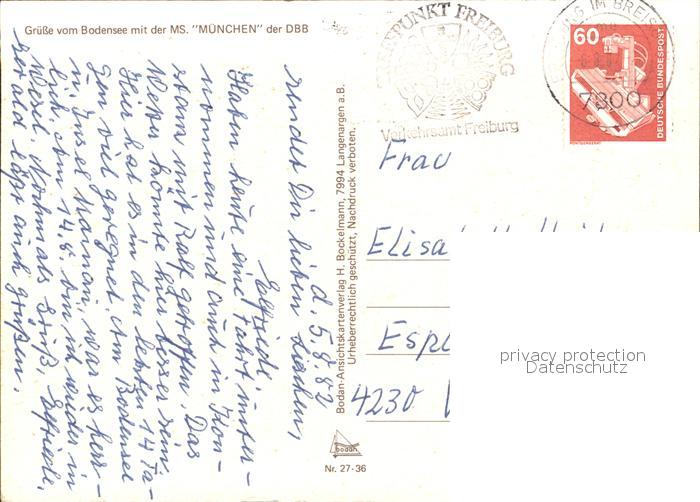 Grüße vom Bodensee mit der MS. "MÜNCHEN" der DBB
d. 5.8.82
sendet Dir lieben
Elfriede.-
Habe heute eine Fahrt unter-
nommen und auch in Kon-
stanz mit Ralf getroffen. Das
Wetter könnte hier besser sein.
Hier hat es in den letzten 14 Ta-
gen viel geregnet. Am Bodensee
Insel Mainau, war es herr-
lich. Am 14.8. bin ich wieder in
Wesel. Nochmals Grüße, Elfriede.
Gerald läßt auch grüßen.
Bodan-Ansichtskartenverlag H. Bockelmann, 7994 Langenargen a.B.
Urheberrechtlich geschützt, Nachdruck verboten.
bodan
Nr. 27-36
FREIBURG
Verkehrsamt Freiburg
IM BREIS
7800
60
DEUTSCHE BUNDESPOST
RÖNTGENGERÄT
Frau
Elisa
Espe
4230
privacy protection
Datenschutz